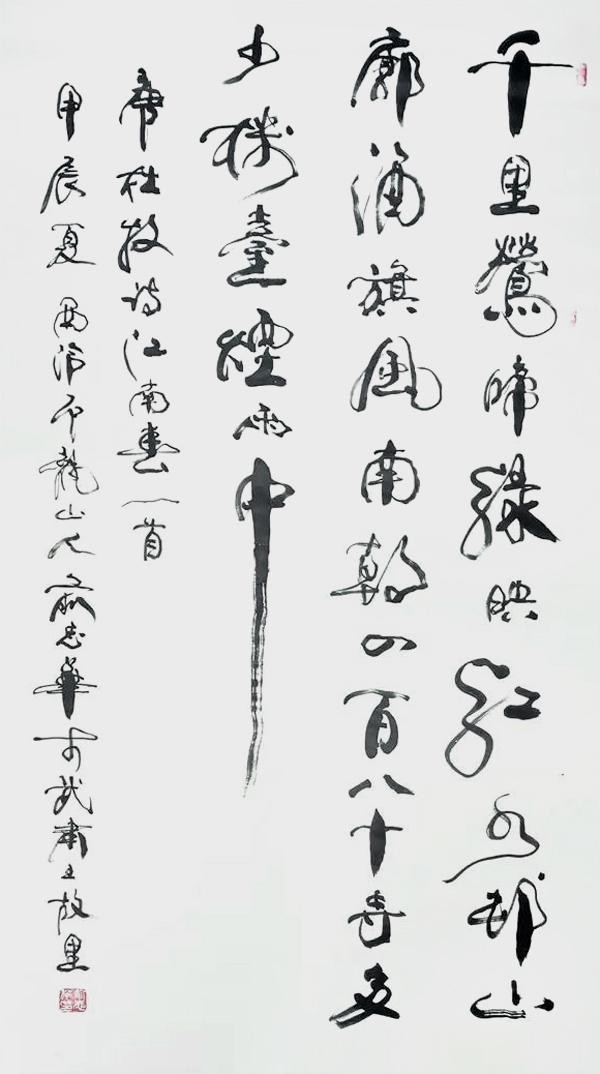 千里鶯啼綠映紅水邨山
廓酒旗風南朝四百八十寺多
少樓臺煙雨中
唐杜牧詩江南春一首
甲辰夏西泠龍山人忠華于武肅王故里